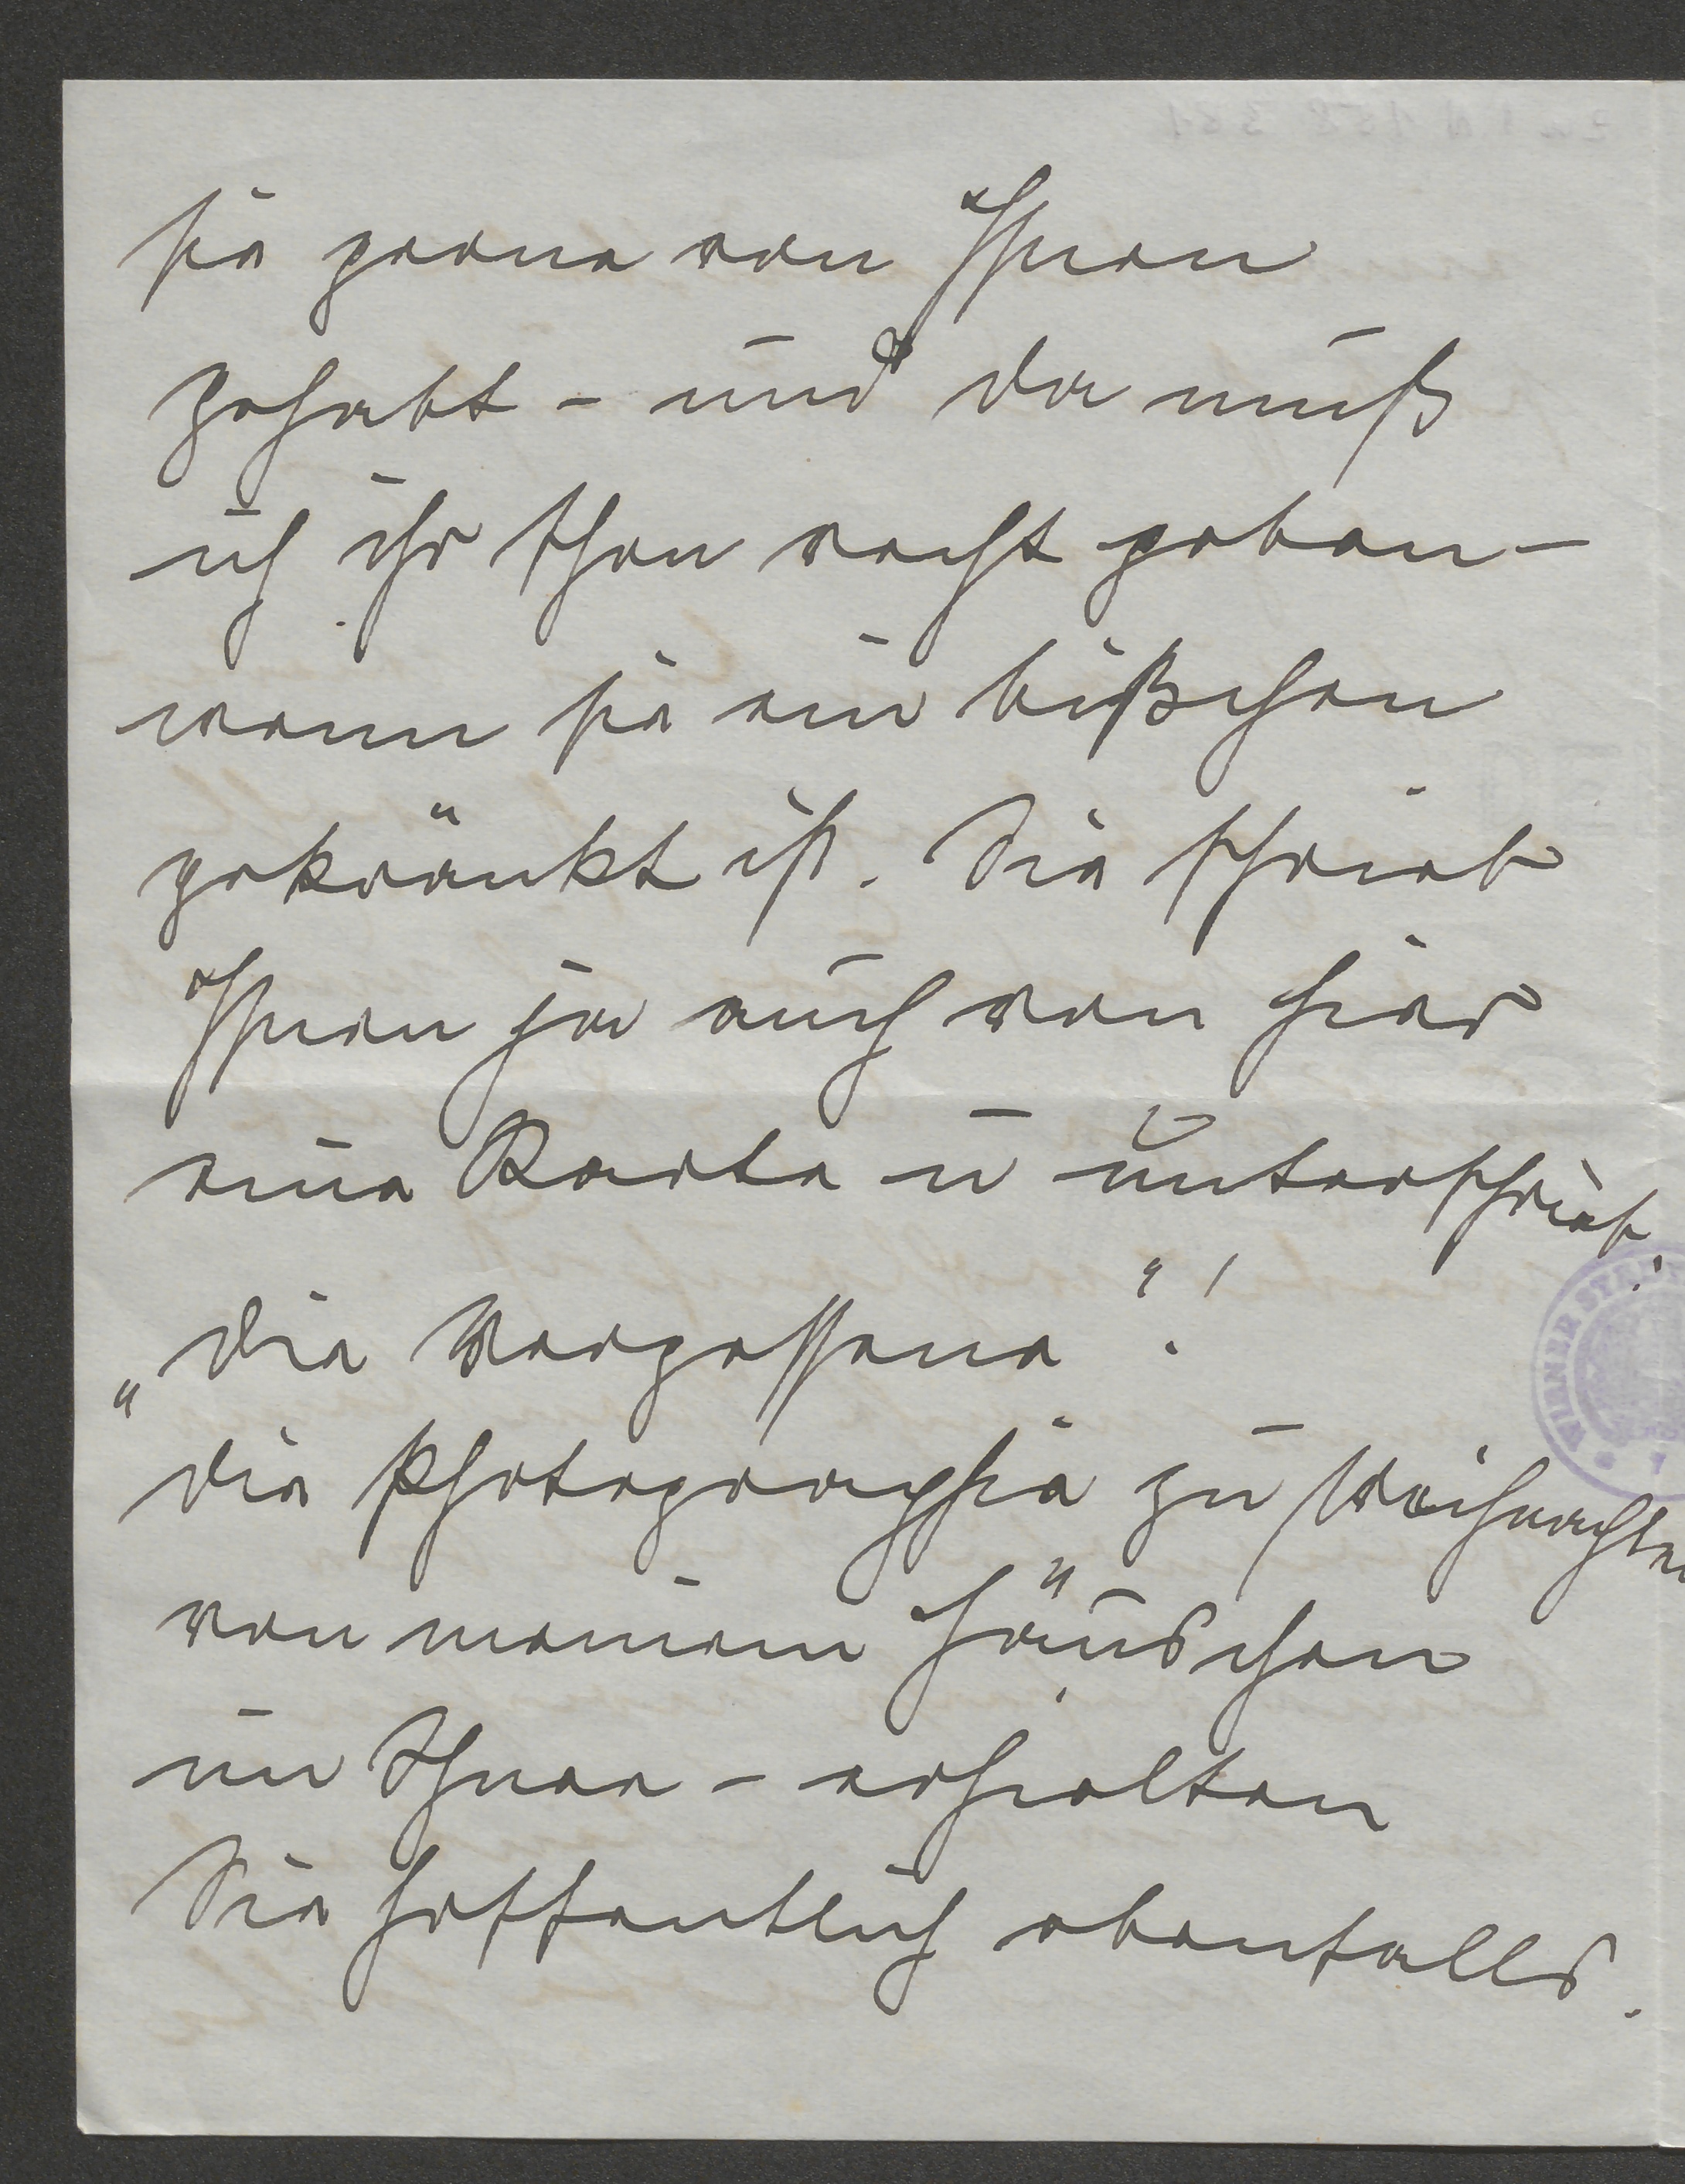 sie gerne von Ihnen
gehabt – und da muß
ich ihr schon recht geben –
wenn sie ein bißchen
gekränkt ist. Sie schrieb
Ihnen ja auch von hier
eine Karte u unterschrieb:
„die Vergessene“!
die Photographie zu Weihnachten
von meinem Häuschen
im Schnee – erhielten
Sie hoffentlich ebenfalls.
WIENER